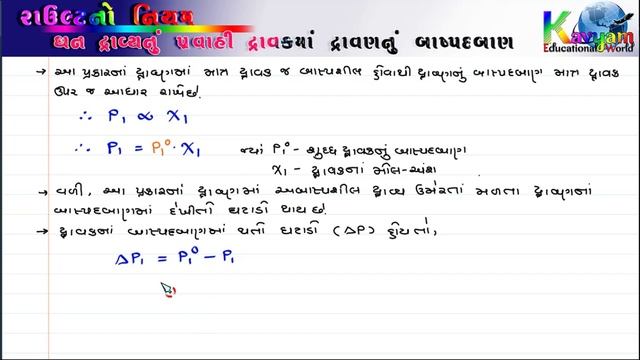 રાઉલ્ટનો નિયમ
ઘન દ્રાવ્યનું પ્રવાહી દ્રાવકમાં દ્રાવણનું બાષ્પદબાણ
Kavyam
Educational World
→ આ પ્રકારનાં દ્રાવણમાં માત્ર દ્રાવક જ બાષ્પશીલ હોવાથી દ્રાવણનું બાષ્પદબાણ માત્ર દ્રાવક
ઉપર જ આધાર રાખેછે.
∴ P₁ ∝ X₁
∴ P₁ = P₁⁰ · X₁ જ્યાં P₁⁰ - શુધ્ધ દ્રાવકનું બાષ્પદબાણ
X₁ - દ્રાવકનાં મોલ-અંશ
→ વળી, આ પ્રકારનાં દ્રાવણમાં અબાષ્પશીલ દ્રાવ્ય ઉમેરતાં મળતા દ્રાવણનાં
બાષ્પદબાણમાં દેખીતો ઘટાડો થાય છે.
→ દ્રાવકનાં બાષ્પદબાણમાં થતો ઘટાડો (ΔP) હોય તો,
ΔP₁ = P₁⁰ − P₁